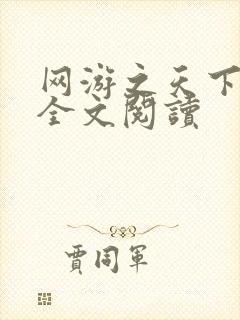 网游之天下
全文閱讀
賈同軍